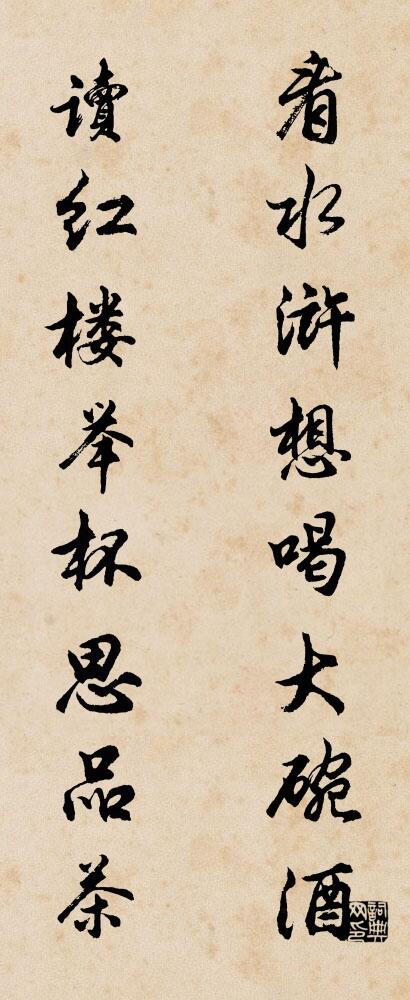 看水浒想喝大碗酒
读红楼举杯思品茶
詞典网印